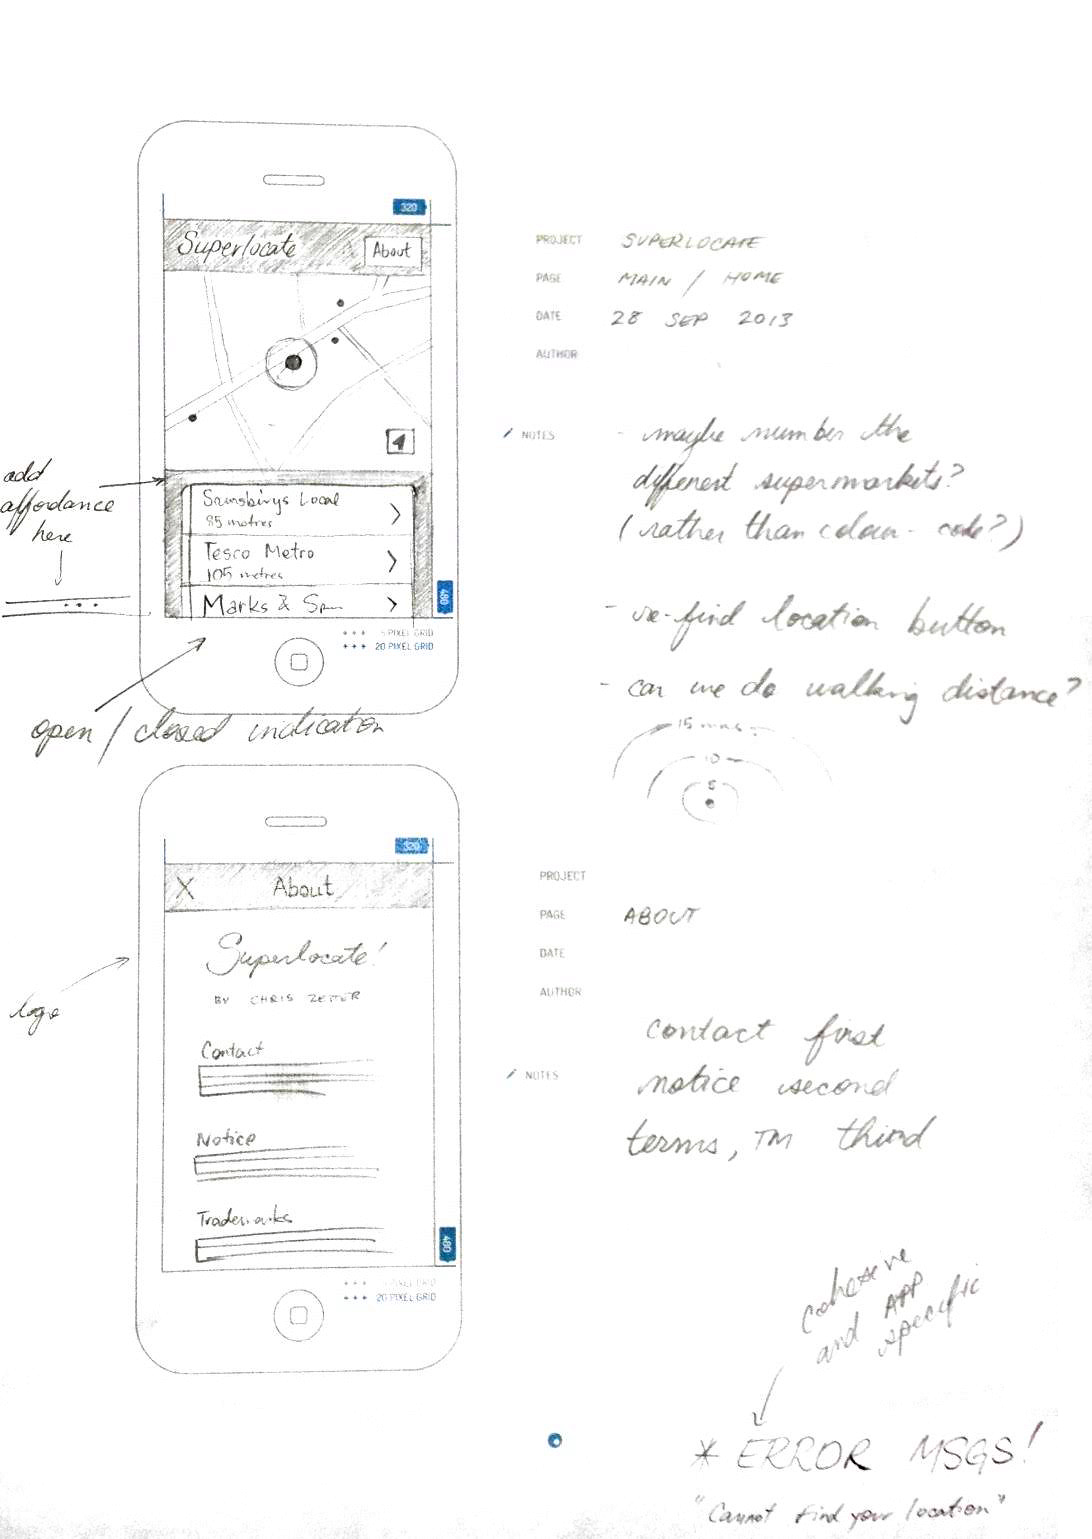 320
Superlocate
About
PROJECT SUPERLOCATE
PAGE MAIN / HOME
DATE 28 SEP 2013
AUTHOR
NOTES
- maybe number the
different supermarkets?
(rather than colour-code?)
- re-find location button
- can we do walking distance?
15 mins
10
5
add
affordance
here
Sainsburys Local
85 metres
Tesco Metro
105 metres
Marks & Sp
480
5 PIXEL GRID
20 PIXEL GRID
open / closed indication
320
X About
Superlocate!
BY CHRIS
logo
Contact
Notice
Trademarks
480
5 PIXEL GRID
20 PIXEL GRID
PROJECT
PAGE ABOUT
DATE
AUTHOR
NOTES
contact first
notice second
terms, TM third
cohesive
and APP
specific
* ERROR MSGS!
"Cannot find your location"